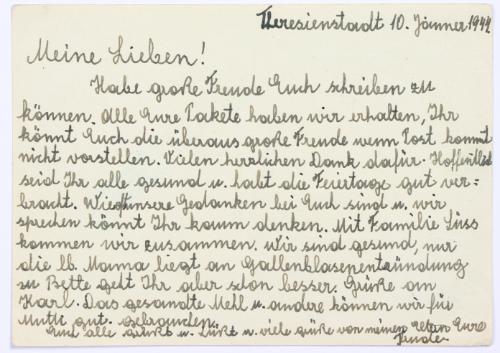 Theresienstadt 10. Jänner 1944
Meine Lieben!
Habe große Freude Euch schreiben zu
können. Alle Eure Pakete haben wir erhalten, Ihr
könnt Euch die überaus große Freude wenn Post kommt
nicht vorstellen. Vielen herzlichen Dank dafür. Hoffentlich
seid Ihr alle gesund u. habt die Feiertage gut ver=
bracht. Wie oft unsere Gedanken bei Euch sind u. wir
sprechen könnt Ihr kaum denken. Mit Familie Süss
kommen wir zusammen. Wir sind gesund, nur
die lb. Mama liegt an Gallenblasenentzündung
zu Bette geht Ihr aber schon besser. Grüße an
Karl. Das gesandte Mehl u. andere können wir für
Mutti gut gebrauchen.
Euch alle grüßt u. küßt u. viele grüße von meinen Eltern Eure